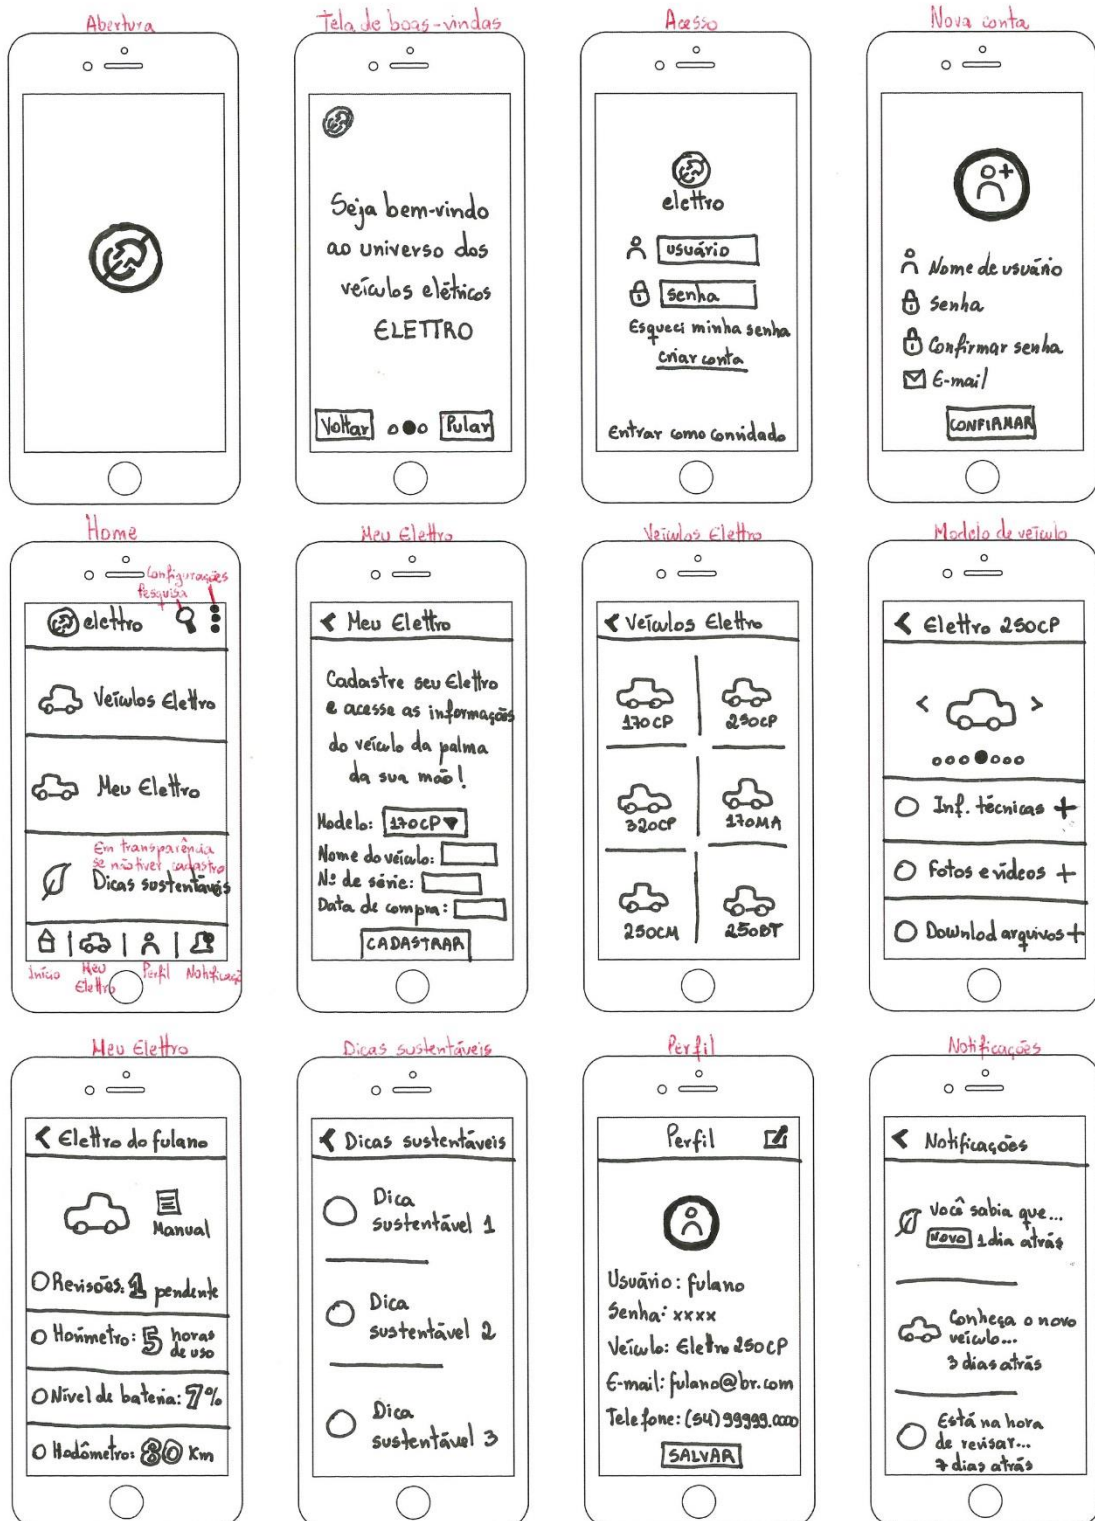 Abertura
Tela de boas-vindas
Seja bem-vindo
ao universo dos
veículos elétricos
ELETTRO
Voltar
Pular
Acesso
elettro
usuário
senha
Esqueci minha senha
criar conta
Entrar como convidado
Nova conta
Nome de usuário
senha
Confirmar senha
E-mail
CONFIRMAR
Home
Configurações
Pesquisa
elettro
Veículos Elettro
Meu Elettro
Em transparência
se não tiver cadastro
Dicas sustentáveis
Início
Meu
Elettro
Perfil
Notificaçõ
Meu Elettro
Meu Elettro
Cadastre seu Elettro
e acesse as informações
do veículo da palma
da sua mão!
Modelo: 170CP
Nome do veículo:
Nº de série:
Data de compra:
CADASTRAR
Veículos Elettro
Veículos Elettro
170CP
250CP
320CP
170MA
250CM
250BT
Modelo de veículo
Elettro 250CP
Inf. técnicas +
Fotos e vídeos +
Downlod arquivos +
Meu Elettro
Elettro do fulano
Manual
Revisões: 1 pendente
Horímetro: 5 horas
de uso
Nível de bateria: 7%
Hodômetro: 80 Km
Dicas sustentáveis
Dicas sustentáveis
Dica
sustentável 1
Dica
sustentável 2
Dica
sustentável 3
Perfil
Perfil
Usuário: fulano
Senha: xxxx
Veículo: Elettro 250CP
E-mail: fulano@br.com
Telefone: (54) 99999.0000
SALVAR
Notificações
Notificações
Você sabia que...
NOVO 1 dia atrás
Conheça o novo
veículo...
3 dias atrás
Está na hora
de revisar...
7 dias atrás